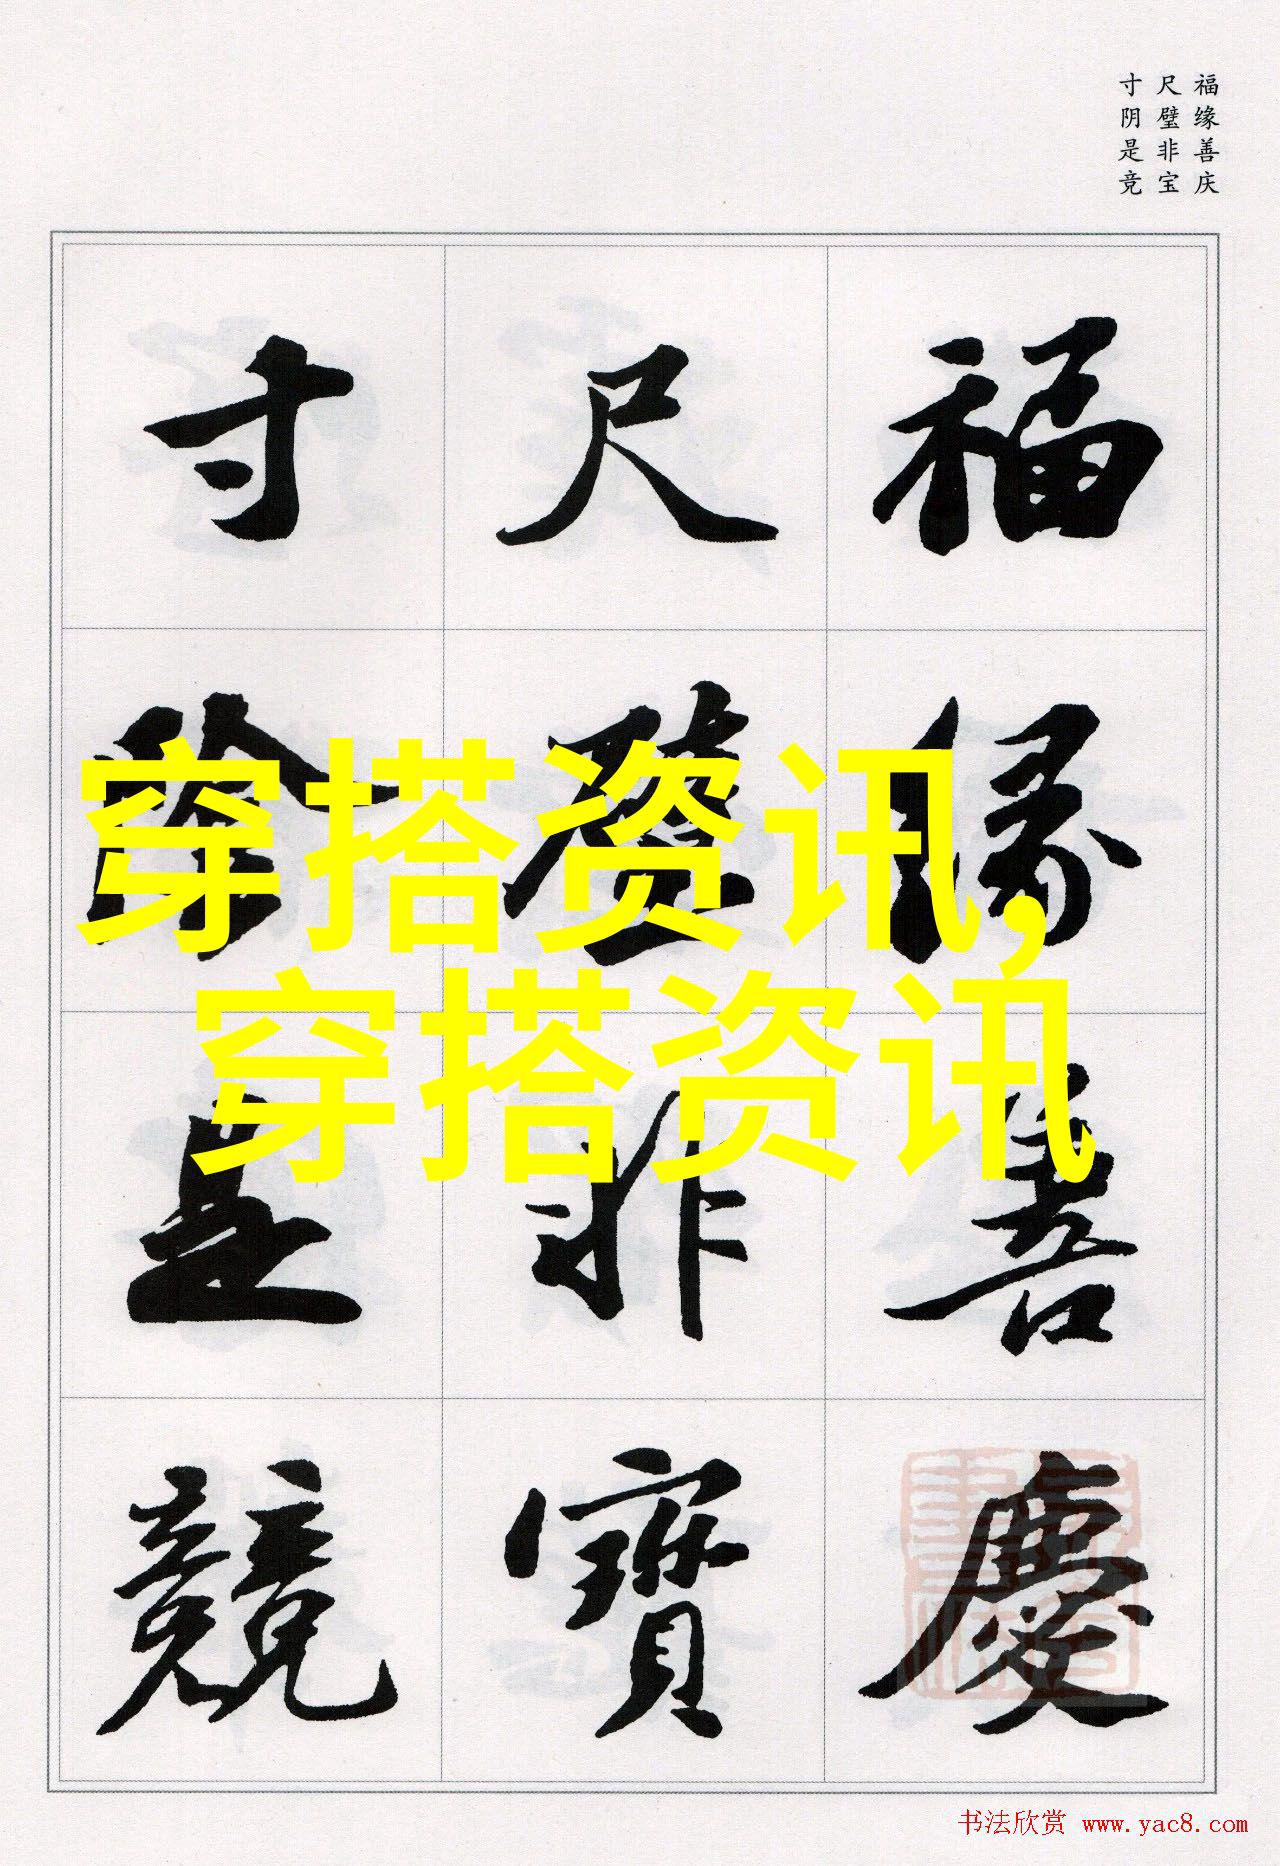 福缘善庆
尺璧非宝
寸阴是竞
福緣善慶
尺璧非寶
寸陰是競
穿搭资讯,
穿搭资讯
书法欣赏 www.yac8.com